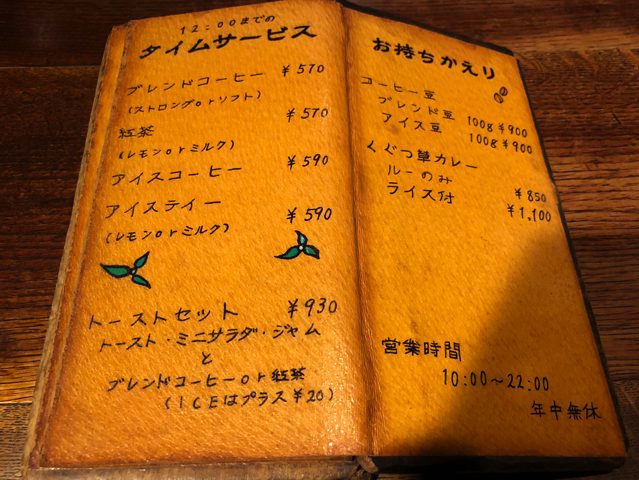 12:00までの
タイムサービス
ブレンドコーヒー ¥570
(ストロングorソフト)
紅茶 ¥570
(レモンorミルク)
アイスコーヒー ¥590
アイスティー ¥590
(レモンorミルク)
トーストセット ¥930
トースト・ミニサラダ・ジャム
と
ブレンドコーヒーor紅茶
(ICEはプラス¥20)
お持ちかえり
コーヒー豆
ブレンド豆 100g ¥900
アイス豆 100g ¥900
くぐつ草カレー
ルーのみ ¥850
ライス付 ¥1,100
営業時間
10:00〜22:00
年中無休